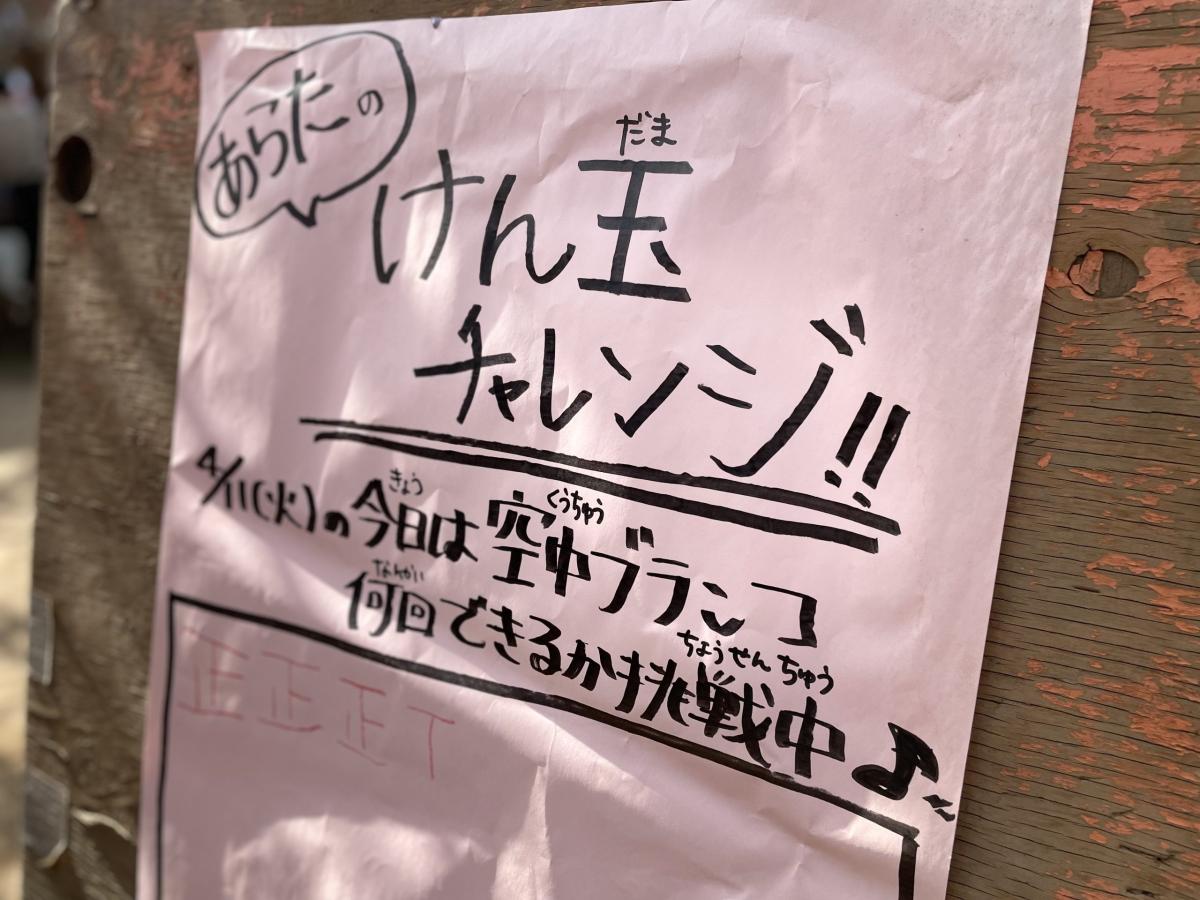 あらたの
だま
けん玉
チャレンジ!!
きょう くうちゅう
4/11(火)の今日は空中ブランコ
なんかい ちょうせんちゅう
何回できるか挑戦中♪
正正正丅